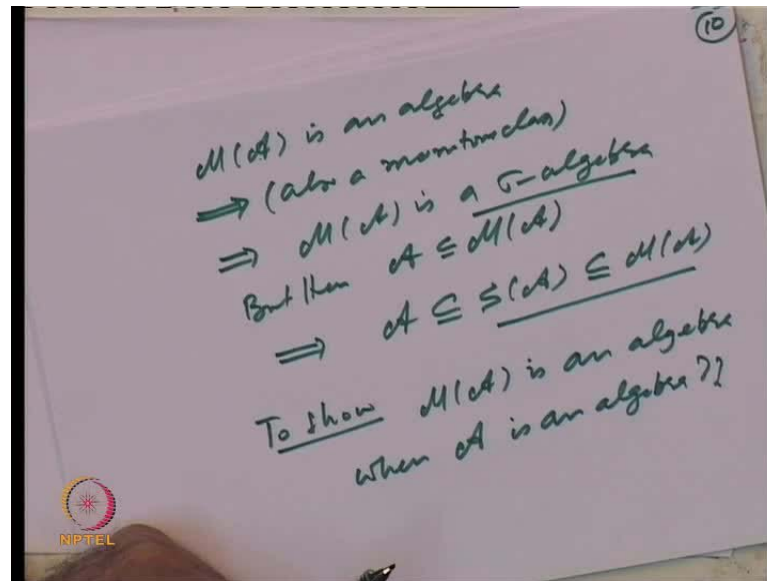 10
M(A) is an algebra
⟹ (also a monotone class)
⟹ M(A) is a σ-algebra
But then A ⊆ M(A)
⟹ A ⊆ S(A) ⊆ M(A)
To show M(A) is an algebra
when A is an algebra ??
NPTEL